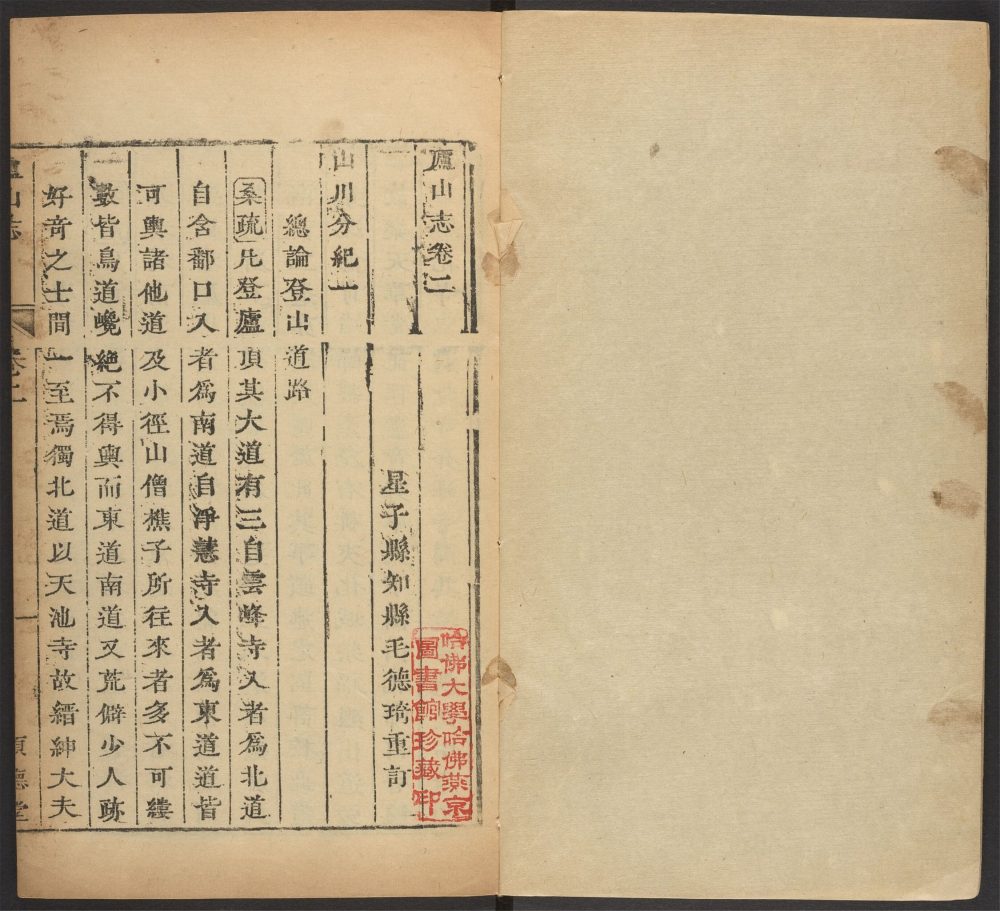 廬山志卷二
星子縣知縣毛德琦重訂
山川分紀一
總論登山道路
桑疏凡登廬頂其大道有三自雲峰寺入者爲北道
自含鄱口入者爲南道自淨慧寺入者爲東道道皆
可輿諸他道及小徑山僧樵子所往來者多不可縷
數皆鳥道巉絶不得輿而東道南道又荒僻少人跡
好奇之士間一至焉獨北道以天池寺故縉紳大夫
廬山志
卷二
一
順德堂
哈佛大學哈佛燕京
圖書館珍藏印